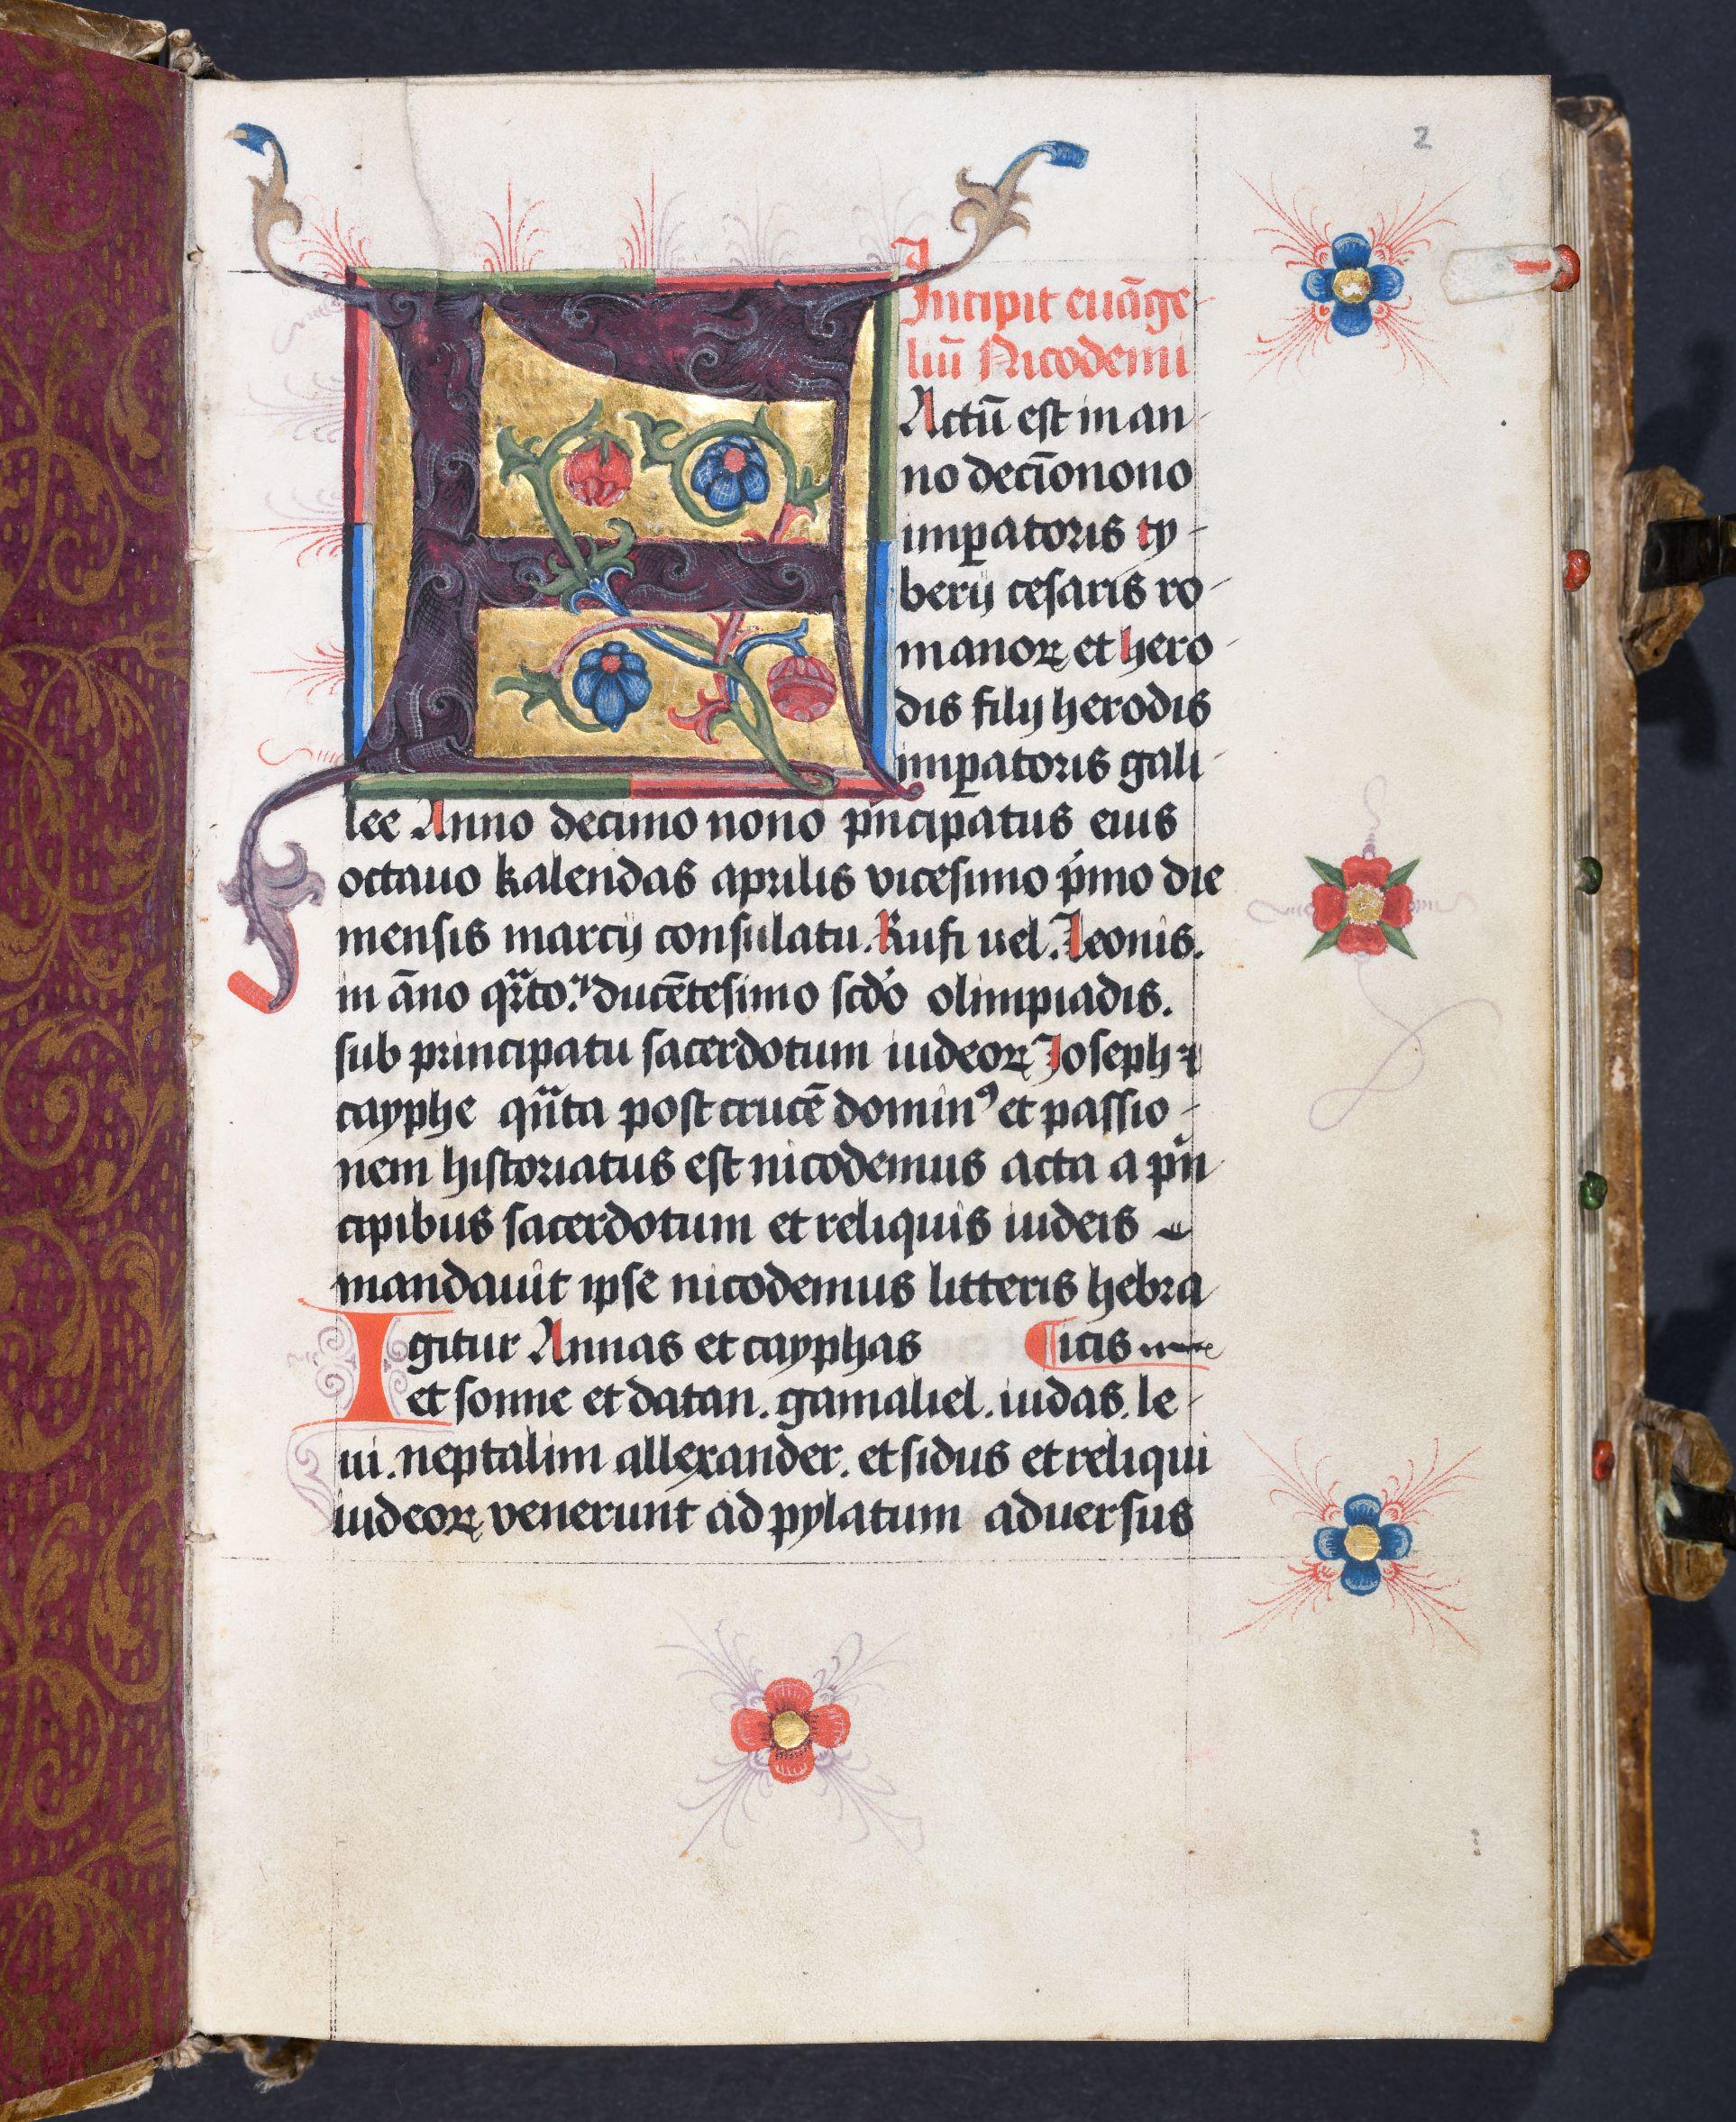 2
Incipit euāge-
liū Nicodemi
Actū est in an-
no deciōnono
imꝑatoris ty-
berij cesaris ro-
manoꝝ et hero-
dis filij herodis
imꝑatoris gali-
lee Anno decimo nono pͥncipatus eius
octauo kalendas aprilis vicesimo pͥmo die
mensis marcij consulatu. Rufi uel. Leonis.
in āno qͣrto. ⁊ ducētesimo scd̓o olimpiadis.
sub principatu sacerdotum iudeoꝝ Joseph ⁊
cayphe qn̄ta post crucē dominꝰ et passio-
nem historiatus est nicodemus acta a pͥn-
cipibus sacerdotum et reliquis iudeis
mandauit ipse nicodemus litteris hebra-
Igitur Annas et cayphas ¶ icis
et somne et datan. gamaliel. iudas. le-
ui. neptalim allexander. et sidus et reliqui
iudeoꝝ venerunt ad pylatum aduersus